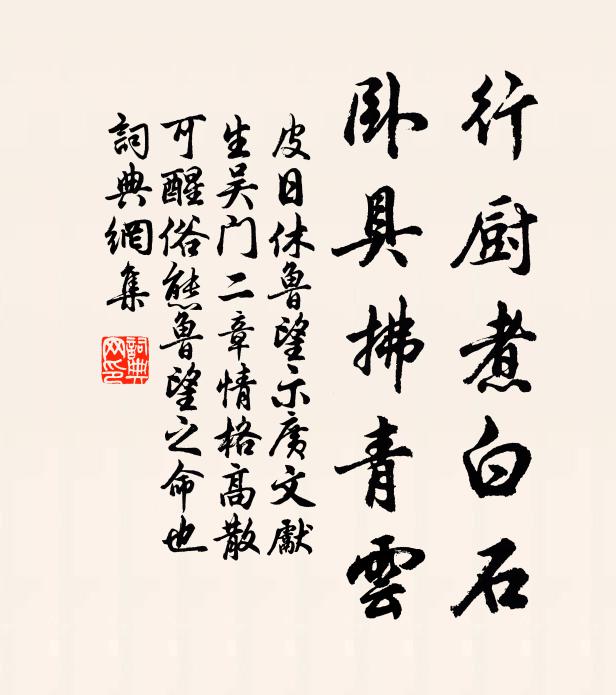 行厨煮白石
卧具拂青雲
皮日休魯望示廣文獻
生吴门二章情格高散
可醒俗態魯望之命也
詞典網集
詞典
网印